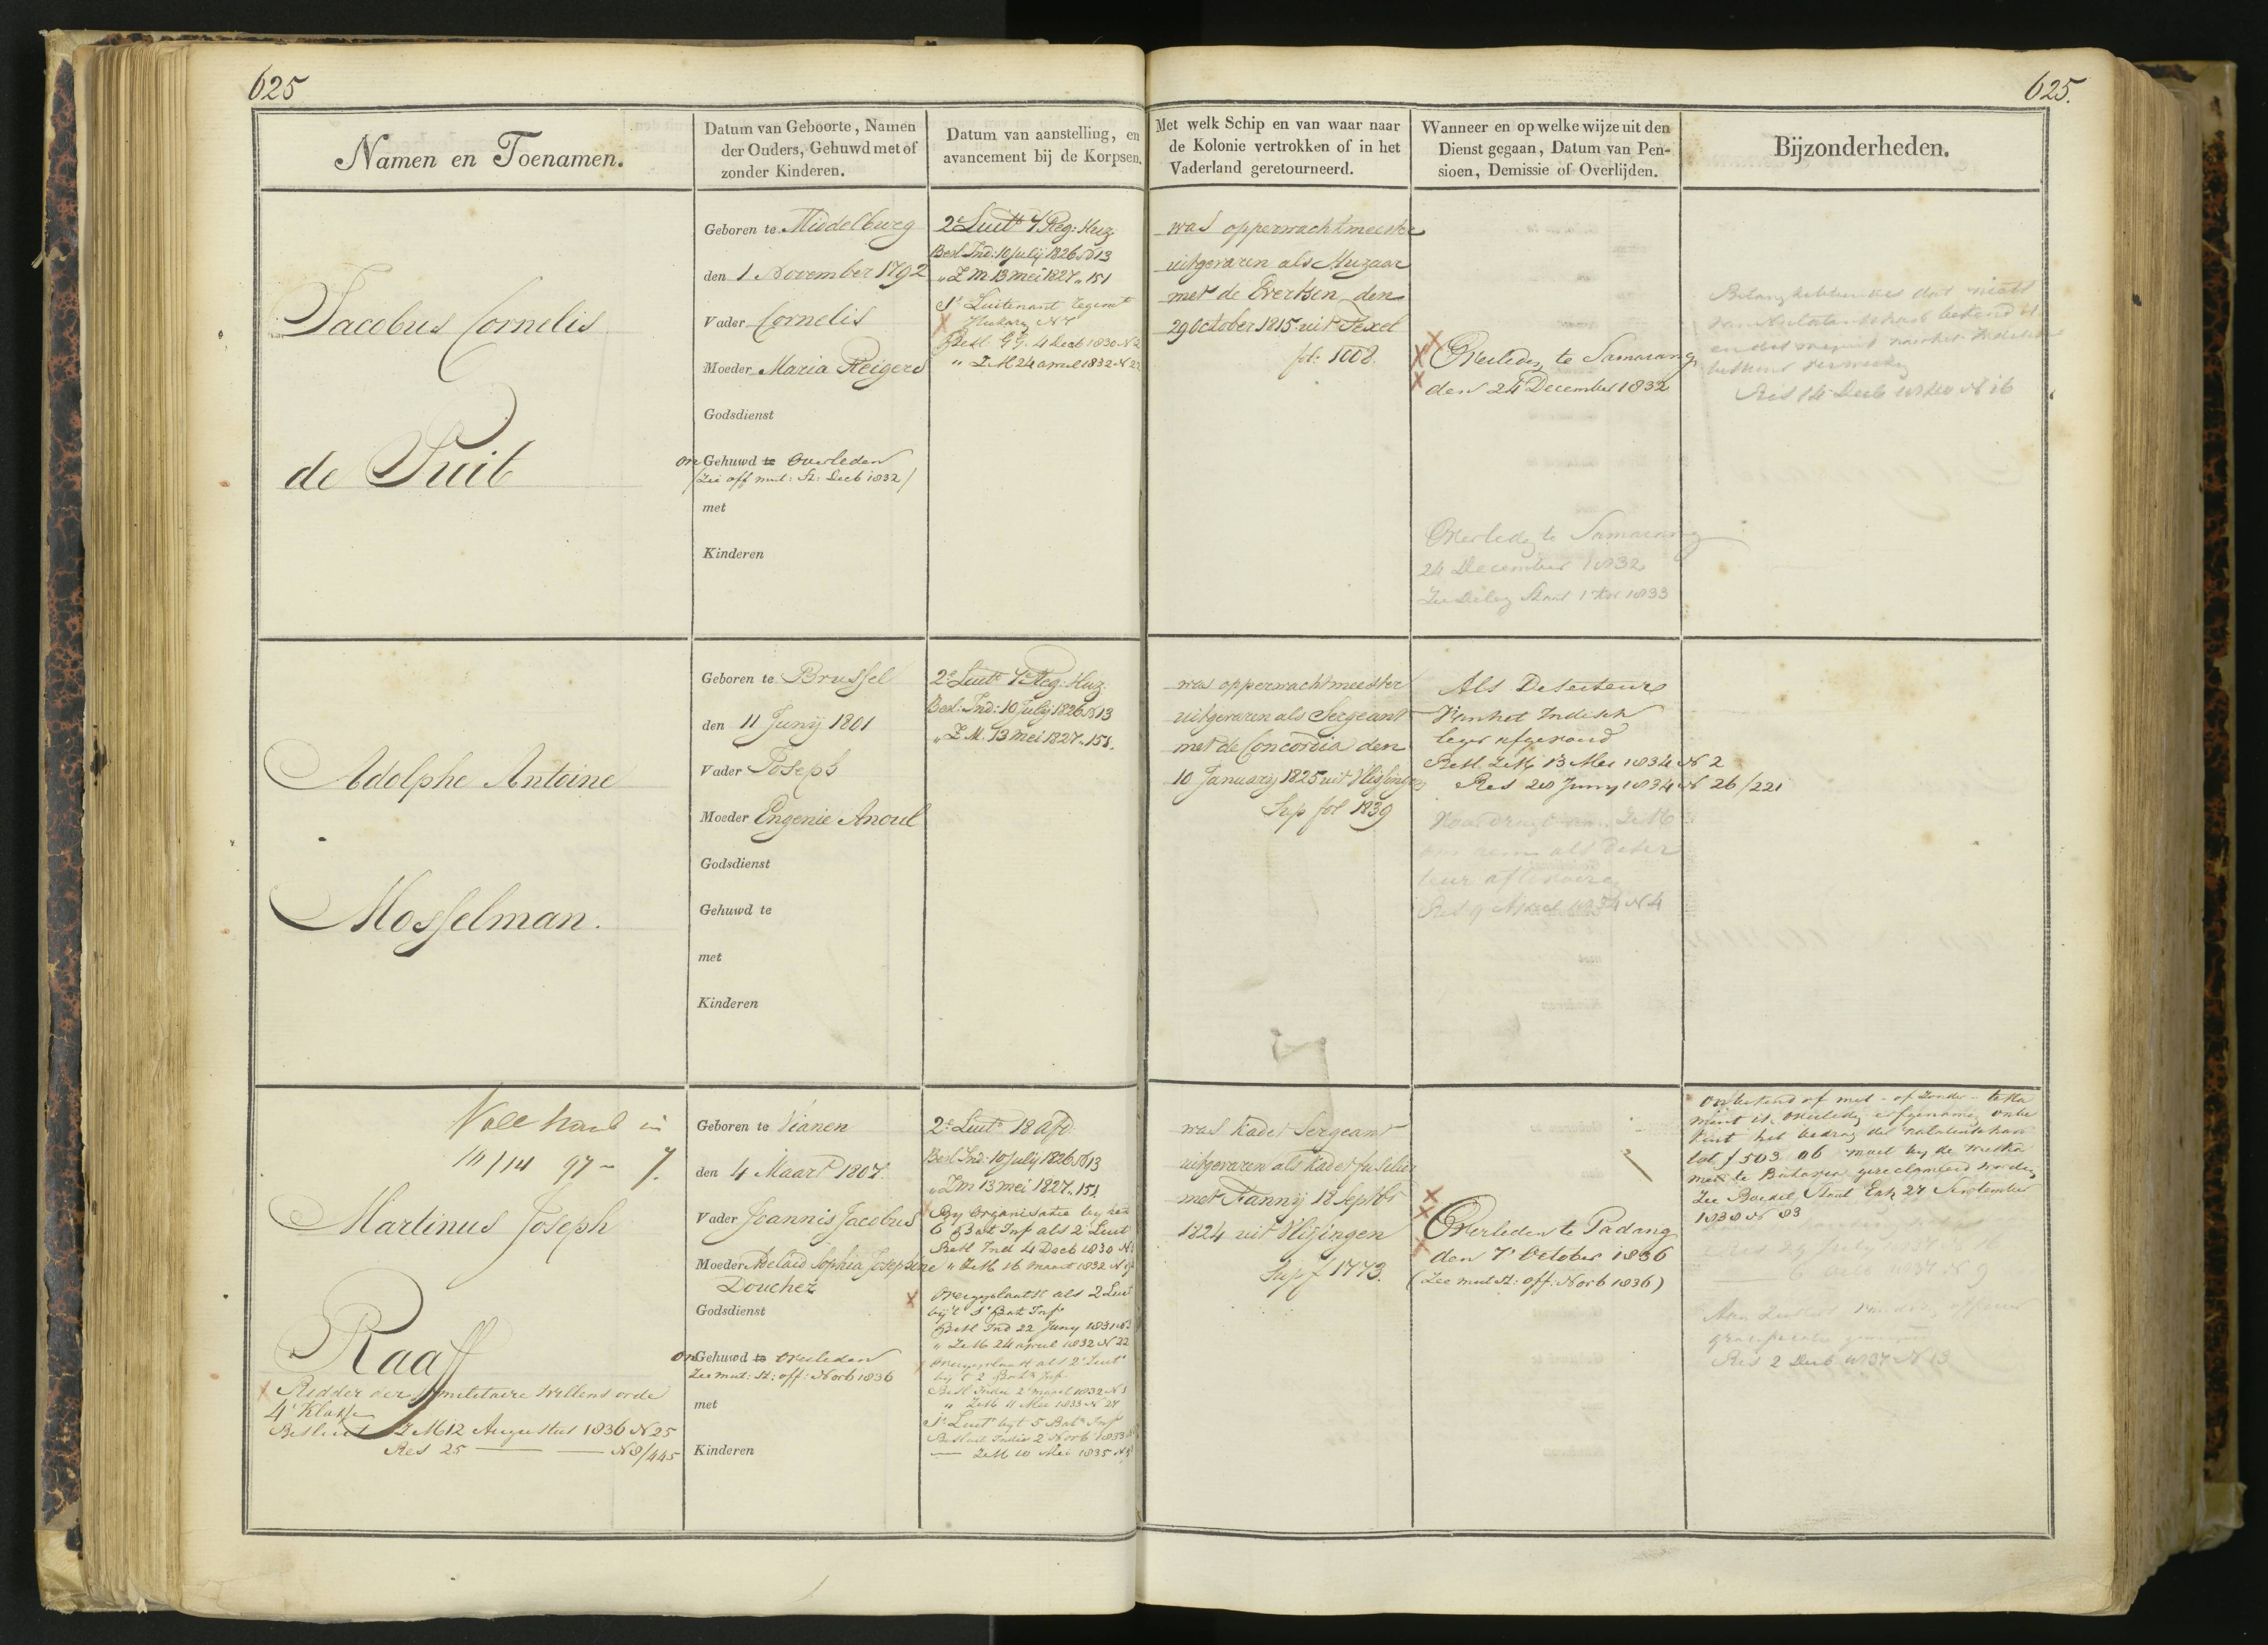 625
625.
Namen en Toenamen.
Datum van Geboorte, Namen
der Ouders, Gehuwd met of
zonder Kinderen.
Datum van aanstelling, en
avancement bij de Korpsen.
Met welk Schip en van waar naar
de Kolonie vertrokken of in het
Vaderland geretourneerd.
Wanneer en op welke wijze uit den
Dienst gegaan, Datum van Pen-
sioen, Demissie of Overlijden.
Bijzonderheden.
Jacobus Cornelis
de Puit
Geboren te Middelburg
den 1 November 1792
Vader Cornelis
Moeder Maria Reigers
Godsdienst
on Gehuwd te Overleden
(Zie off mut: St: Decb 1832)
met
Kinderen
2e Luitt 7 Reg: Huz
Besl Ind: 10 July 1826 N 13
„ Z M 13 mei 1827 „ 151
1e Luitenant Regemt
Besl G G. 4 Decb 1830 N 2
„ Z M 24 april 1832 N 22
was opperwachtmeester
uitgevaren als Huzaar
met de Evertsen den
29 October 1815 uit Texel
fol: 1008.
Overleden te Samarang
den 24 December 1832
Overleden te Samarang
24 December 1832
1833
Res 14 Decb N 16
Adolphe Antoine
Mosselman.
Geboren te Brussel
den 11 Junij 1801
Vader Joseph
Moeder Eugenie Anoul
Godsdienst
Gehuwd te
met
Kinderen
2e Luitt 7 Reg: Huz.
Besl: Ind: 10 July 1826 N 13
„ Z. M. 13 mei 1827 „ 151.
was opperwachtmeester
uitgevaren als Sergeant
met de Concordia den
10 January 1825 uit Vlissingen
Sup fol 1839
Als Deserteur
van het Indisch
leger afgevoerd
Besl. Z M 13 Mei 1834 N 2
Res 20 Juny 1834 N 26/221
Z M
als Deser
teur
Res 9 April 1834 N 4
Martinus Joseph
Raaff
Ridder der militaire Willems orde
4e Klasse
Besluit Z M 12 Augustus 1836 N 25
Res 25 — — N 8/445
Geboren te Vianen
den 4 Maart 1807.
Vader Joannis Jacobus
Moeder Adelaid Sophia Josephine
Douchez
Godsdienst
on Gehuwd te Overleden
Zie mut: St: off: Novb 1836
met
Kinderen
2e Luitt 18 afd
Besl Ind: 10 July 1826 N 13
„ Z M 13 mei 1827 „ 151.
By Organisatie by het
6 Bat Inf als 2 Luit
Besl Ind 4 Decb 1830 N
„ Z M 16 maart 1832 N
Overgeplaatst als 2 Luit
bij 't 1e Bat Inf
Besl Ind 22 Juny 1831 N
„ Z M 24 april 1832 N 22
Overgeplaatst als 2e Luit
bij 't 2 Bat Inf
Besl Indie 2 maart 1832 N 1
„ Z M 11 Mei 1833 N 27
1e Luit by 't 5 Bat Inf
Besluit Indie 2 Novb 1833
— Z M 10 Mei 1835 N
was Kadet Sergeant
uitgevaren als Kadet fuselier
met Fannij 18 Septbr
1824 uit Vlissingen
Sup f 1773.
Overleden te Padang
den 7e October 1836
(Zie mut St: off: Novb 1836)
Onbekend of met - of zonder - testa
ment is Overleden erfgenamen onbe
kent het bedrag der nalatenschap
tot f 503.06 moet by de weeska
mer te Batavia gereclameerd worden
Zie Boedel Staat 27 September
1838 N 83
Res 2 Decb 1837 N 13